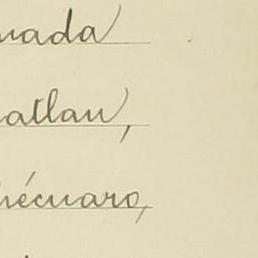 uada
atlan,
hécuaro,